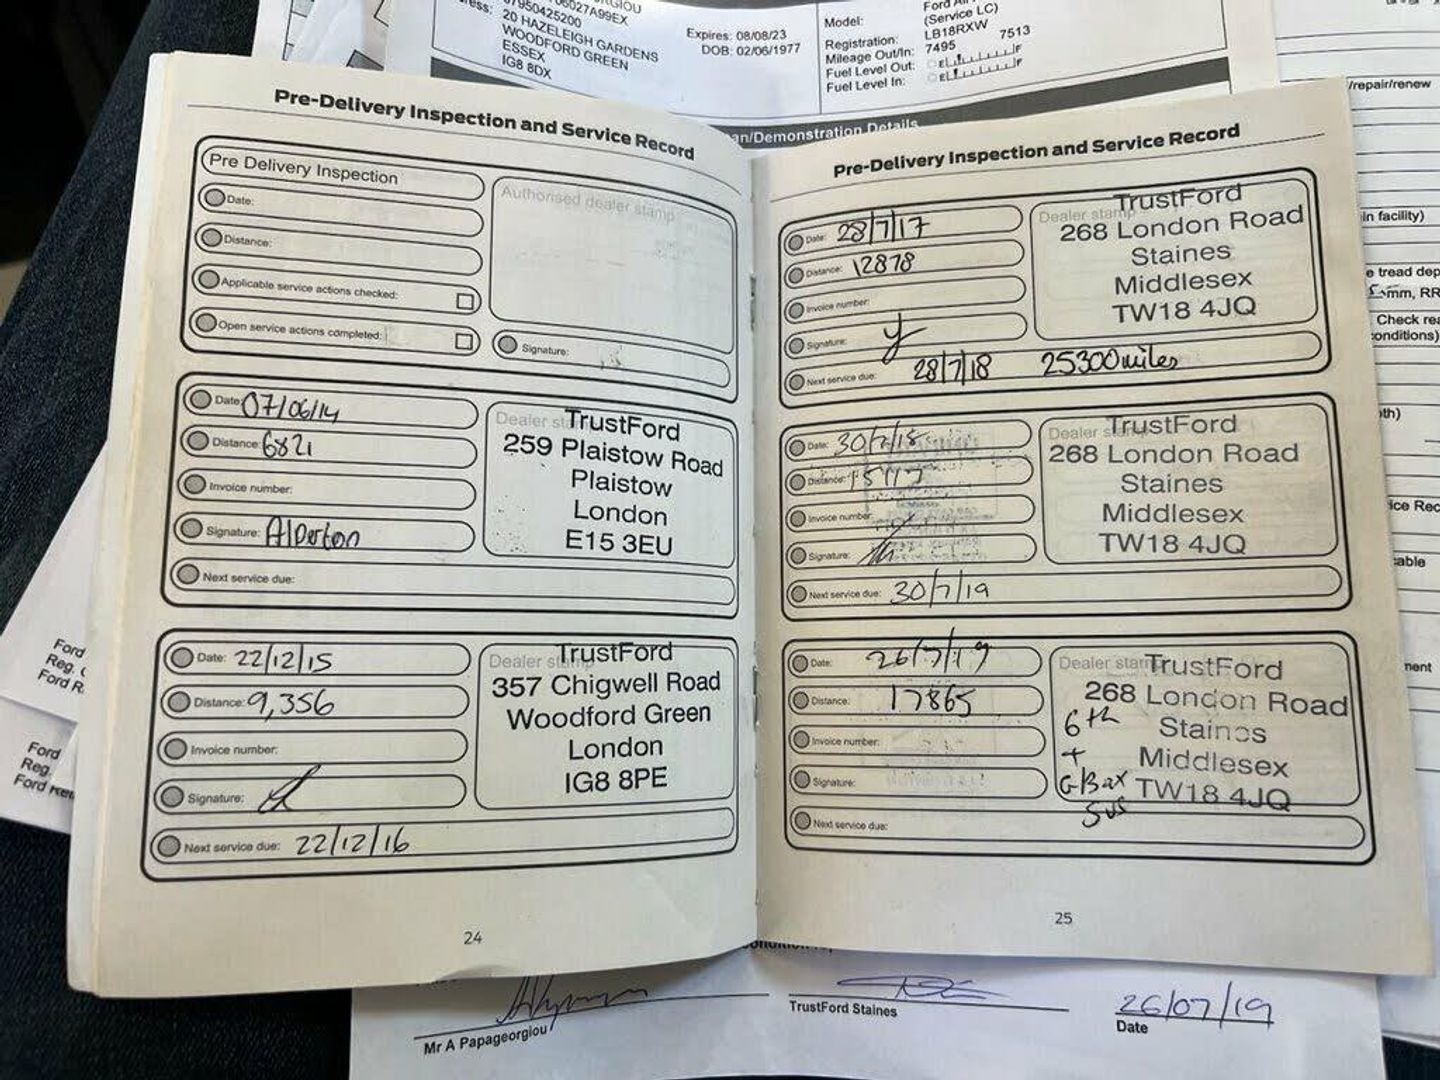 07950425200
20 HAZELEIGH GARDENS
WOODFORD GREEN
ESSEX
IG8 8DX
Expires: 08/08/23
DOB: 02/06/1977
Model:
(Service LC)
Registration: LB18RXW
Mileage Out/In: 7495 7513
Fuel Level Out: E F
Fuel Level In: E F
an/Demonstration Details
Pre-Delivery Inspection and Service Record
Pre Delivery Inspection
Date:
Distance:
Applicable service actions checked:
Open service actions completed:
Authorised dealer stamp
Signature:
Date: 07/06/14
Distance: 6821
Invoice number:
Signature: Alperton
Next service due:
Dealer stamp
TrustFord
259 Plaistow Road
Plaistow
London
E15 3EU
Date: 22/12/15
Distance: 9,356
Invoice number:
Signature:
Next service due: 22/12/16
Dealer stamp
TrustFord
357 Chigwell Road
Woodford Green
London
IG8 8PE
24
Pre-Delivery Inspection and Service Record
Date: 28/7/17
Distance: 12878
Invoice number:
Signature:
Next service due: 28/7/18 25300miles
Dealer stamp
TrustFord
268 London Road
Staines
Middlesex
TW18 4JQ
Date: 30/7/18
Distance:
Invoice number:
Signature:
Next service due: 30/7/19
Dealer stamp
TrustFord
268 London Road
Staines
Middlesex
TW18 4JQ
Date: 26/7/19
Distance: 17865
Invoice number:
Signature:
Next service due:
Dealer stamp
TrustFord
268 London Road
Staines
Middlesex
TW18 4JQ
6th
+
G/Box
Svs
25
/repair/renew
in facility)
e tread dep
mm, RR
Check rea
onditions)
ice Rec
Ford
Reg.
Ford R
Ford
Reg.
Ford
Mr A Papageorgiou
TrustFord Staines
26/07/19
Date